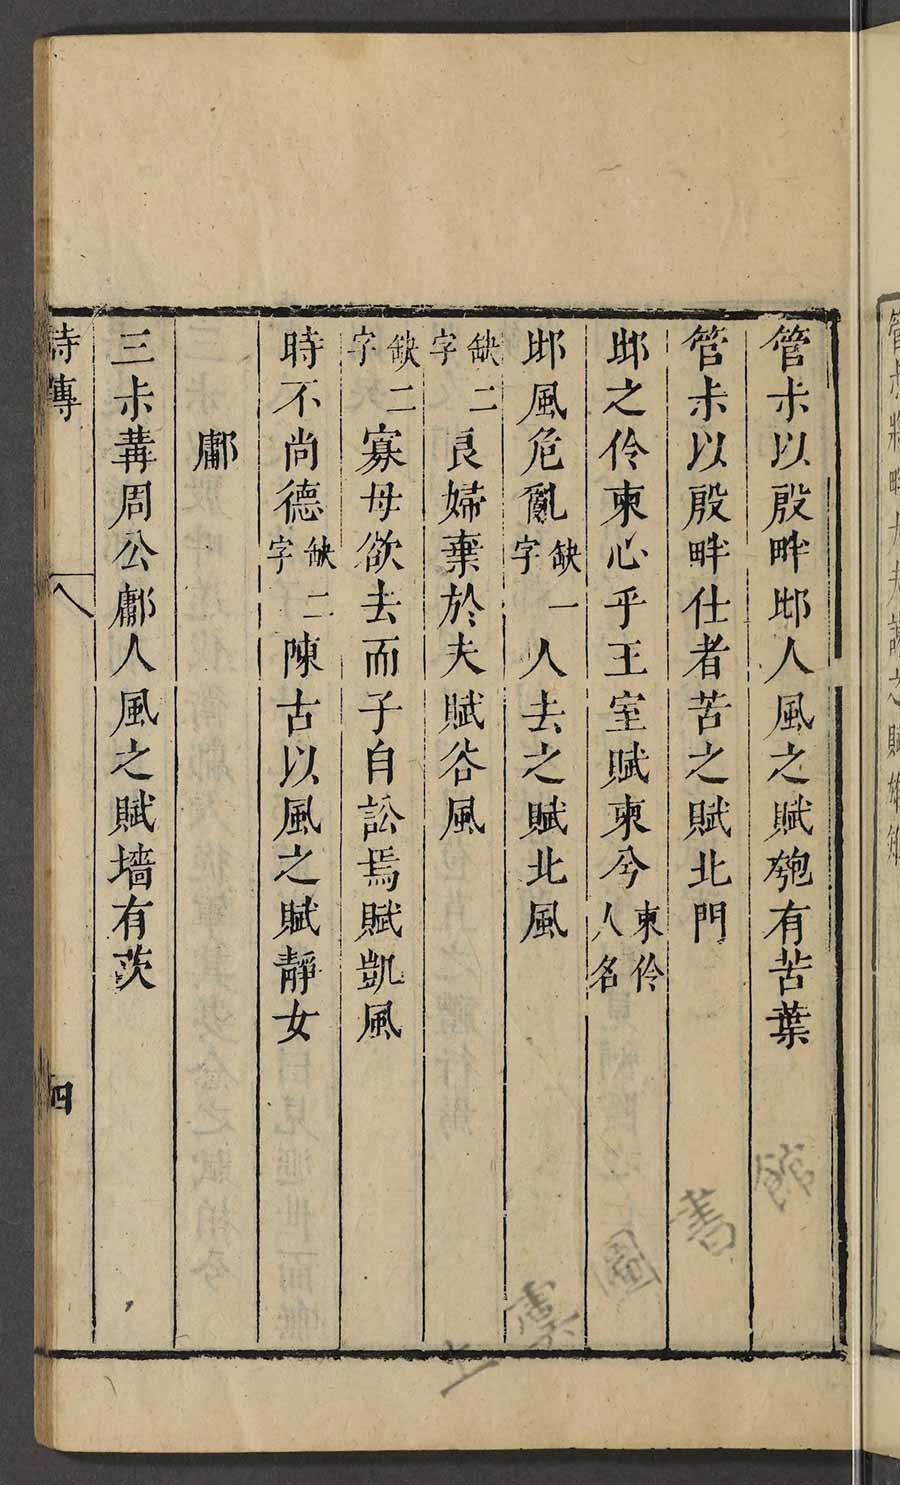 管尗以殷畔邶人風之賦匏有苦葉
管尗以殷畔仕者苦之賦北門
邶之伶柬心乎王室賦柬兮柬伶人名
邶風危亂缺一字人去之賦北風
缺二字良婦棄於夫賦谷風
缺二字寡母欲去而子自訟焉賦凱風
時不尚德缺二字陳古以風之賦靜女
鄘
三尗冓周公鄘人風之賦墻有茨
詩傳
四
上
圖
書
館